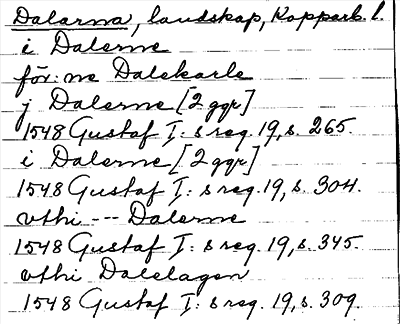 Dalarna, landskap, Kopparb. l.
i Dalerne
för: ne Dalekarle
j Dalerne [2 ggr]
1548 Gustaf I: s reg. 19, s. 265.
i Dalerne [2 ggr]
1548 Gustaf I: s reg. 19, s. 304.
vthi --- Dalerne
1548 Gustaf I: s reg. 19, s. 345.
vthi Dalelagen
1548 Gustaf I: s reg. 19, s. 309.